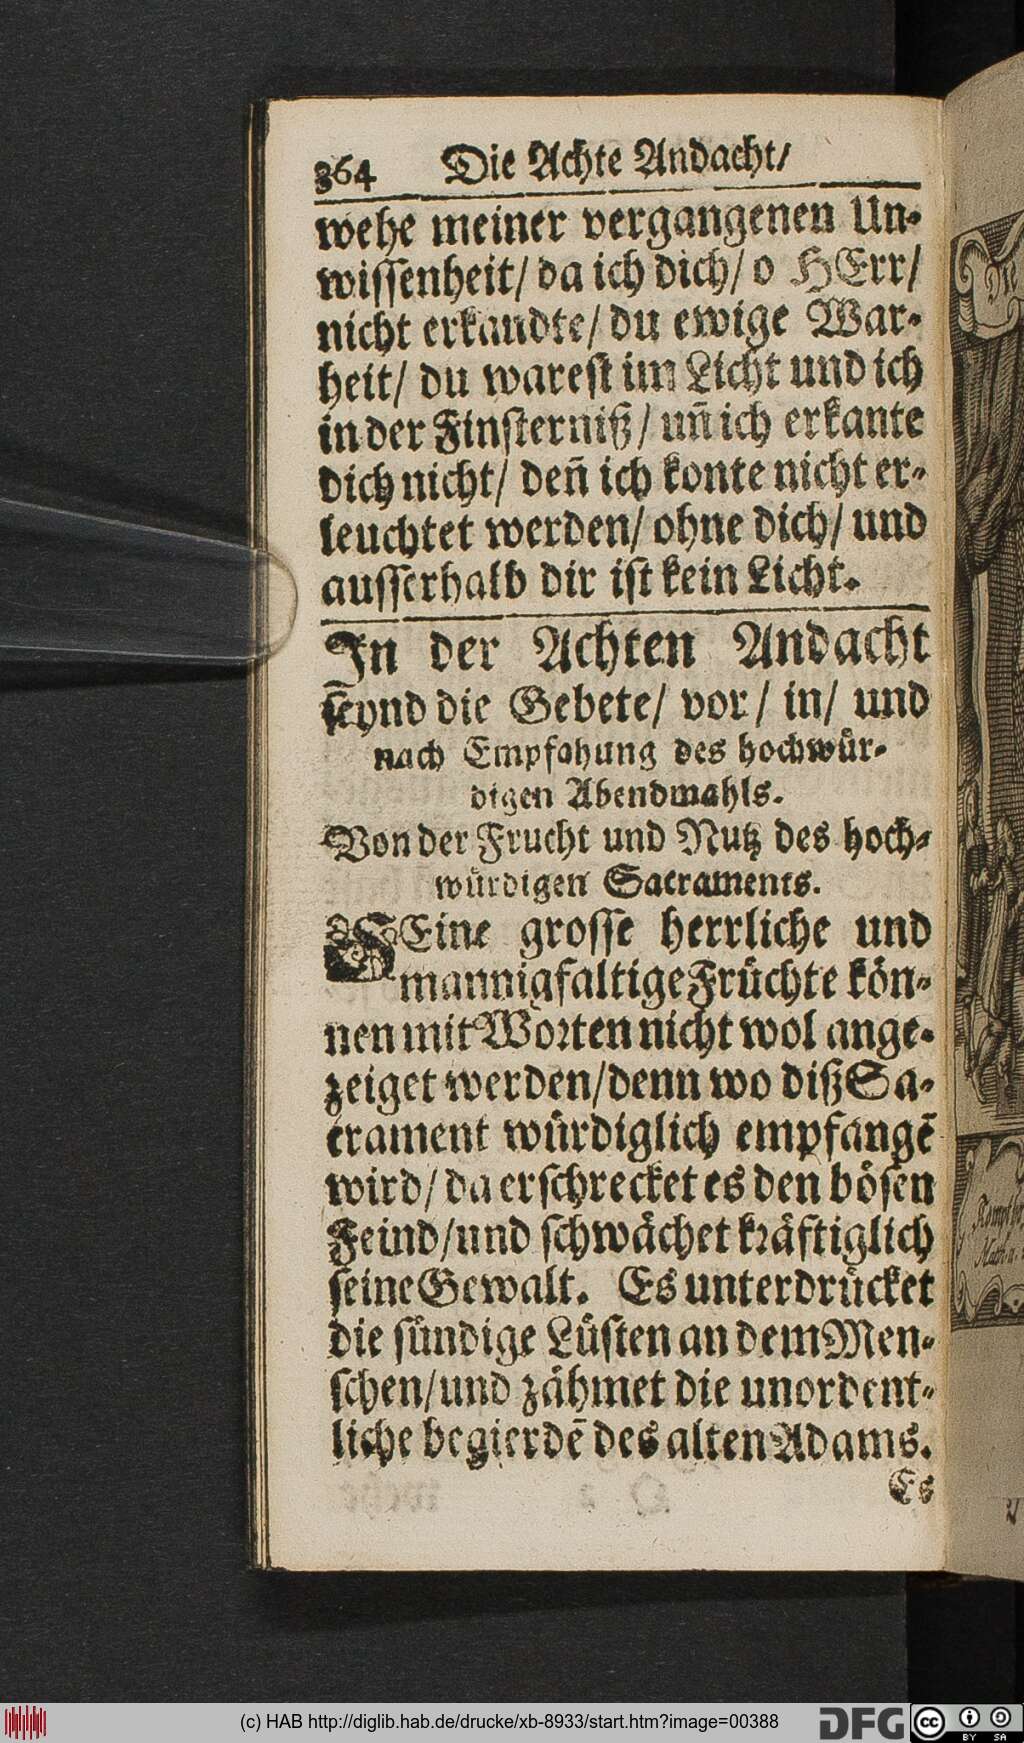 364 Die Achte Andacht/
wehe meiner vergangenen Un-
wissenheit/ da ich dich/ o HErr/
nicht erkandte/ du ewige War-
heit/ du warest im Licht und ich
in der Finsterniß/ uñ ich erkante
dich nicht/ deñ ich konte nicht er-
leuchtet werden/ ohne dich/ und
ausserhalb dir ist kein Licht.
In der Achten Andacht
seynd die Gebete/ vor/ in/ und
nach Empfahung des hochwür-
digen Abendmahls.
Von der Frucht und Nutz des hoch-
würdigen Sacraments.
SEine grosse herrliche und
mannigfaltige Früchte kön-
nen mit Worten nicht wol ange-
zeiget werden/ denn wo diß Sa-
crament würdiglich empfangẽ
wird/ da erschrecket es den bösen
Feind/ und schwächet kräftiglich
seine Gewalt. Es unterdrücket
die sündige Lüsten an dem Men-
schen/ und zähmet die unordent-
liche begierdẽ des alten Adams.
Es
(c) HAB http://diglib.hab.de/drucke/xb-8933/start.htm?image=00388
DFG
cc BY SA